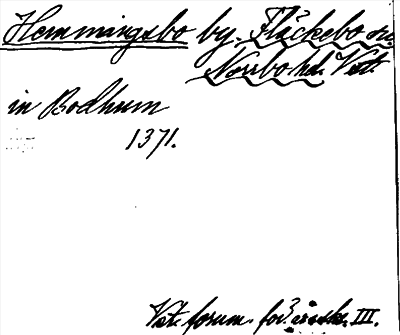 Hemmingsbo by. Fläckebo sn.
Norrbo hd. Vstm.
in Bodhum
1371.
Vst. fornm. för:s årsskr. III.